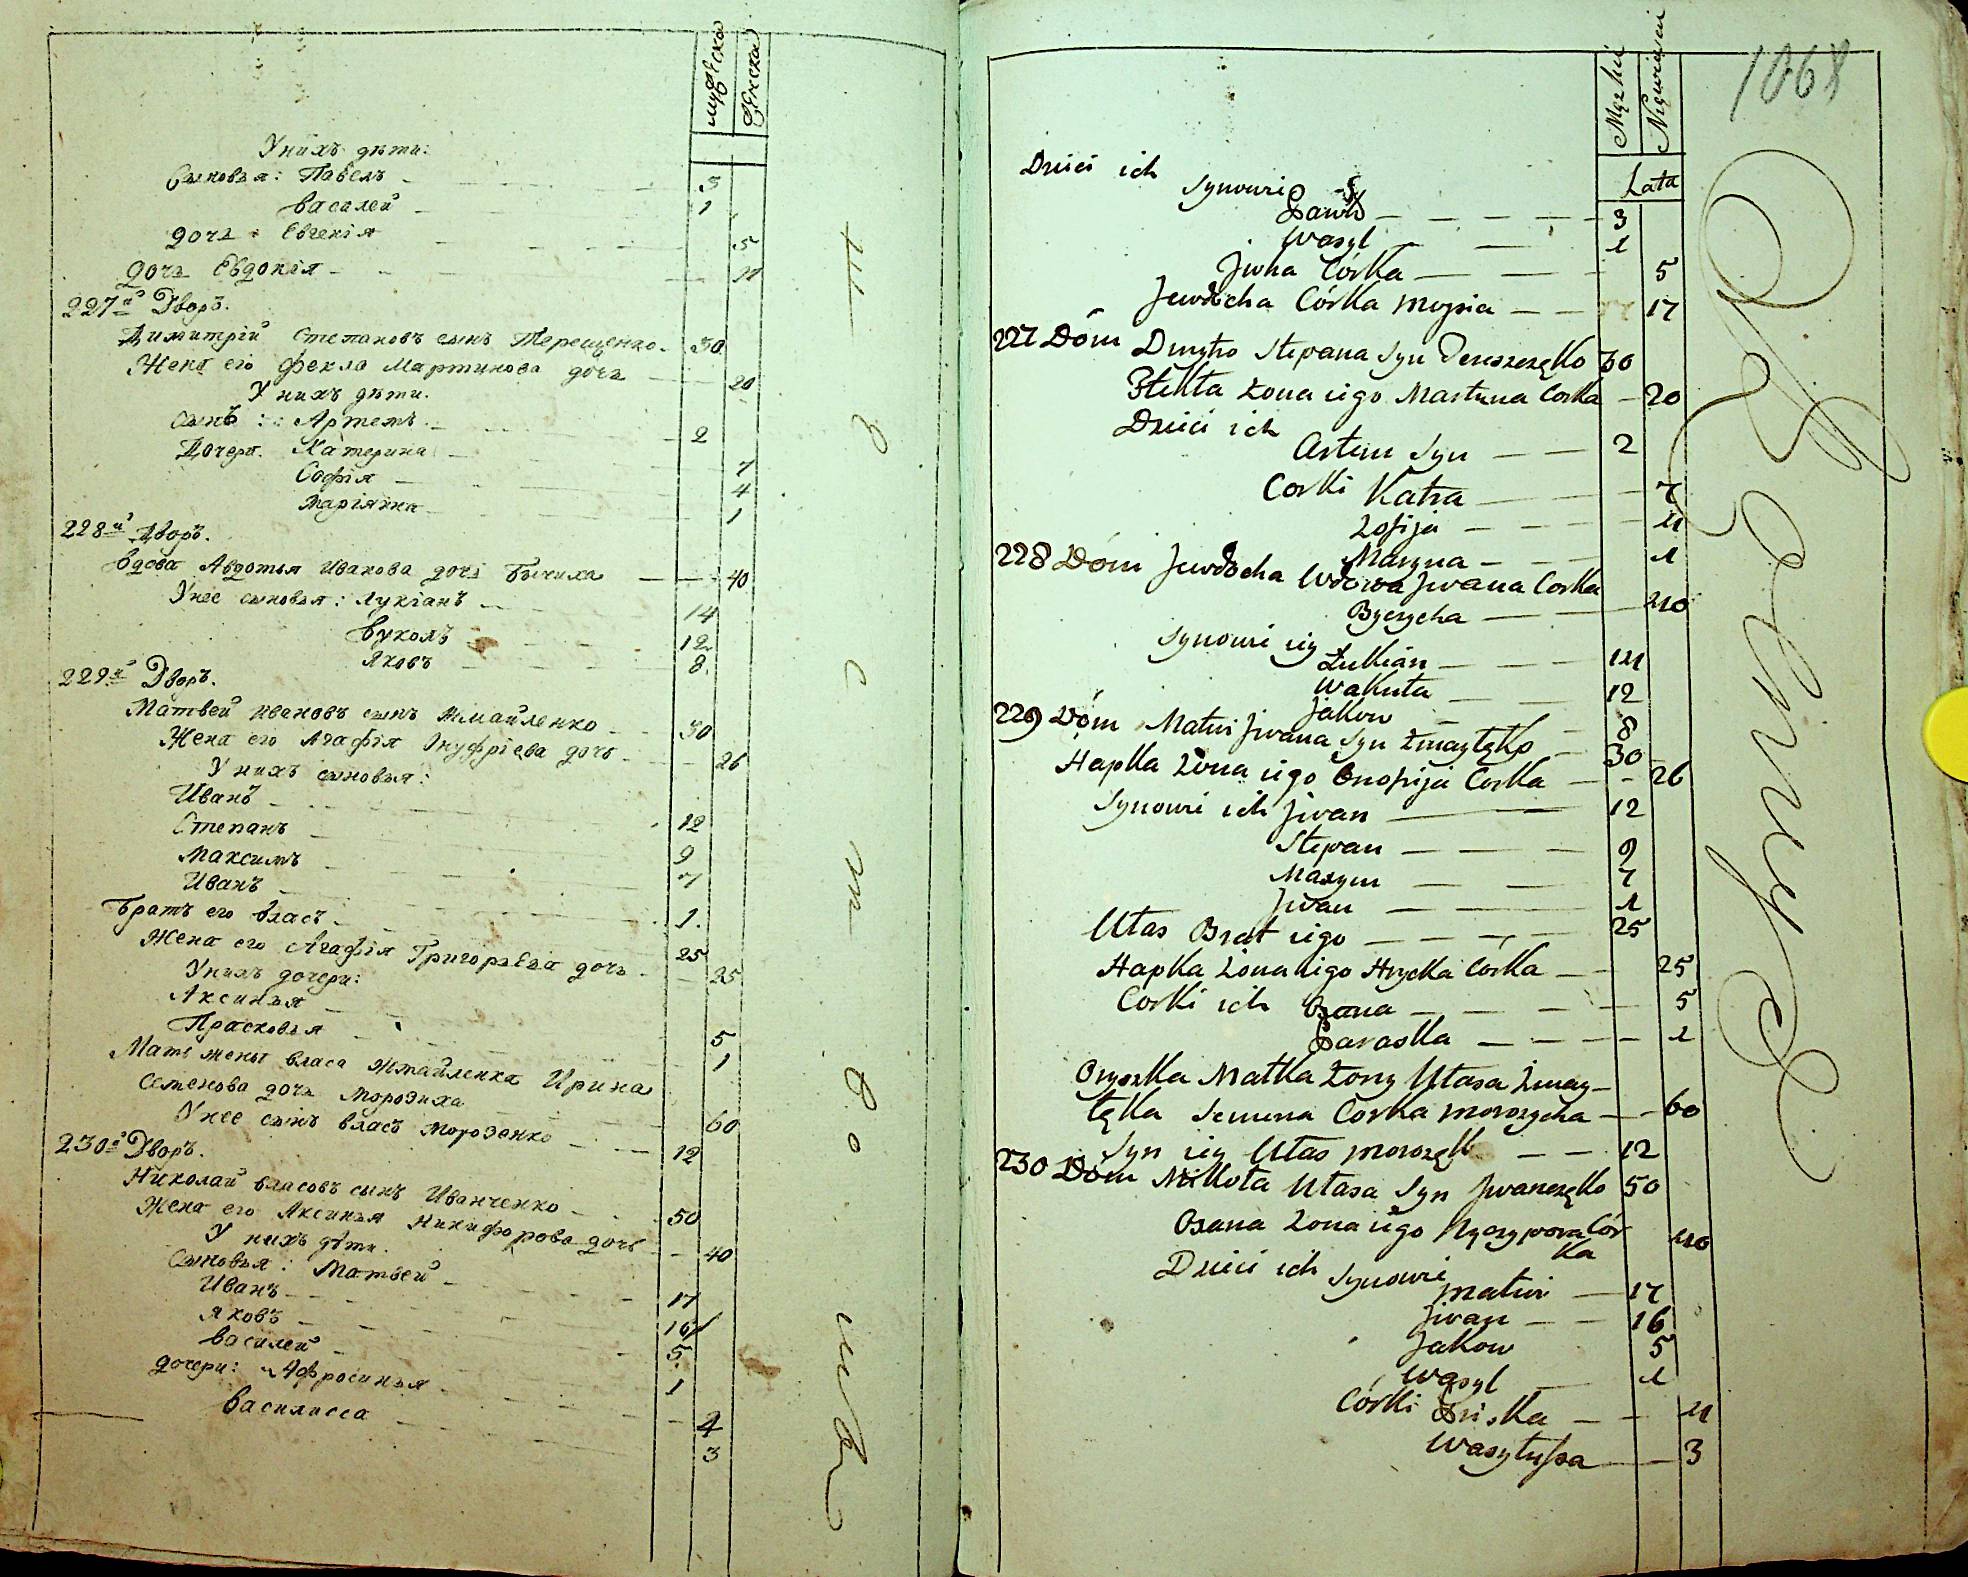 мужеска
женска
У нихъ дѣти:
Сыновья: Павелъ 3
Василей 1
дочь: Евгенія 5
дочь Евдокія 17
227й Дворъ.
Димитрій Степановъ сынъ Терещенко 30
Жена его Фекла Мартинова дочь 20
У нихъ дѣти.
сынъ: Артемъ 2
Дочери. Катерина 7
Софія 4
Маріяна 1
228й Дворъ.
Вдова Авдотья Иванова дочь Бычиха 40
У нее сыновья: Лукіанъ 14
Вуколъ 12
Яковъ 8
229й Дворъ.
Матвей Ивановъ сынъ Жмайленко 30
Жена его Агафія Онуфріева дочь 26
У нихъ сыновья:
Иванъ 12
Степанъ 9
Максимъ 7
Иванъ 1
Братъ его Власъ 25
Жена его Агафія Григорьева дочь 25
У нихъ дочери:
Аксинья 5
Прасковья 1
Мать жены Власа Жмайленка Ирина
Семенова дочь Морозиха 60
У нее сынъ Власъ Морозенко 12
230й Дворъ.
Николай Власовъ сынъ Иванченко 50
Жена его Аксинья Никифорова дочь 40
У нихъ дѣти.
Сыновья: Матвей 17
Иванъ 16
Яковъ 5
Василей 1
дочери: Афросинья 4
Василисса 3
1068
Męzkiej
Niewiejsciej
Lata
Dzieci ich
Synowie
Pawło 3
Wasyl 1
Jiwha Córka 5
Jewdocha Córka Moysia 17
227 Dóm Dmytro Stepana Syn Tereszczęko 30
Thekła Żona iego Martyna Corka 20
Dzieci ich
Artem Syn 2
Corki Katra 7
Zofija 4
Maryna 1
228 Dóm Jewdocha Wdowa Jwana Corka
Byczycha 40
Synowie iey Łukian 14
Wakuła 12
Jakow 8
229 Dóm Matwi Jwana Syn Żmaylęko 30
Hapka Żona iego Onofrija Corka 26
Synowie ich Jwan 12
Stepan 9
Maxym 7
Jwan 1
Ułas Brat iego 25
Hapka Żona iego Hrycka Córka 25
Corki ich Oxana 5
Paraska 1
Oryszka Matka Żony Ułasa Żmay-
lęka Semena Corka Morozycha 60
Syn iey Ułas Morozęk 12
230 Dóm Mikoła Ułasa Syn Jwanczęko 50
Oxana Żona iego Nyczypora Cór
ka 40
Dzieci ich Synowie
Matwi 17
Jwan 16
Jakow 5
Wasyl 1
Córki Priska 4
Wasyłyssa 3